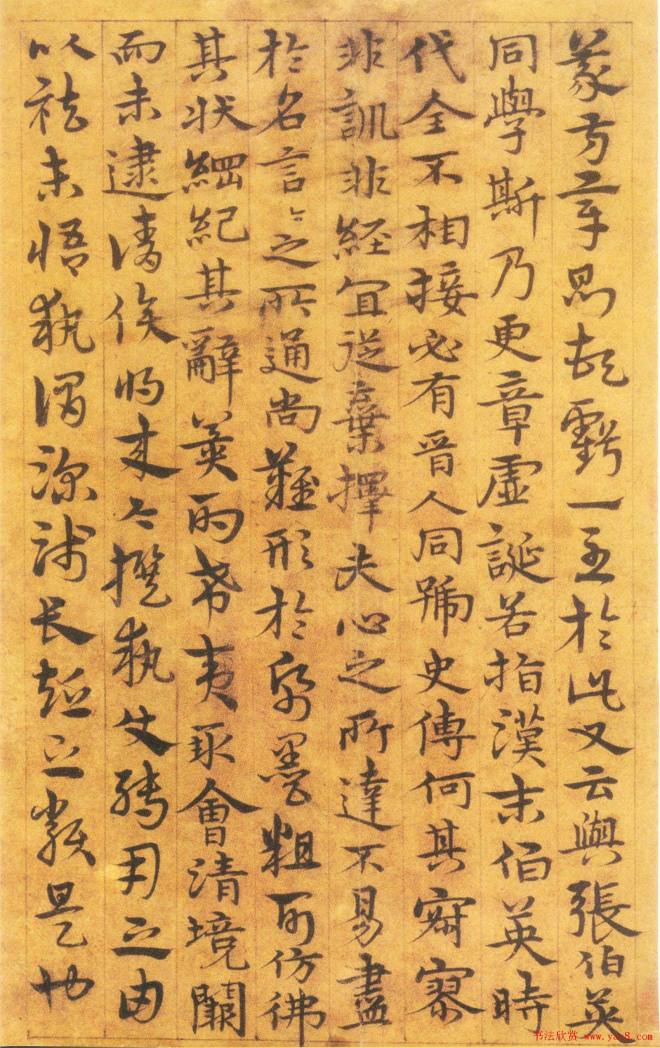 義方章則頓虧一至於此又云與張伯英
同學斯乃更章虛誕若指漢末伯英時
代全不相接必有晉人同號史傳何其寂寥
非訓非經宜從棄擇夫心之所達不易盡
於名言言之所通尚難形於紙墨粗可仿彿
其狀綱紀其辭冀酌希夷取會清境闕
而未逮請俟將來今撰執使轉用之由
以祛未悟執謂深淺長短之類是也
书法欣赏 www.yac8.com